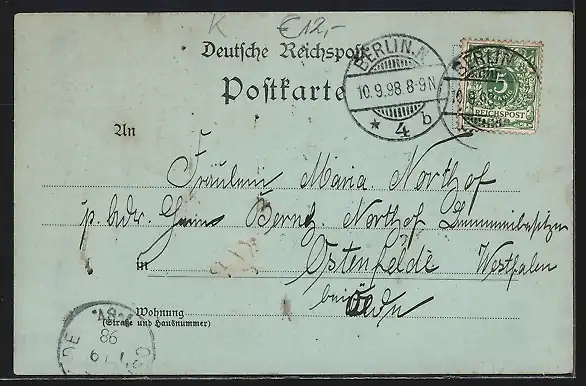 K €12,-
Deutsche Reichspost
Postkarte
BERLIN. N
10.9.98. 8-9N
* 4 b
BERLIN. N
10.9.98. 8-
5
REICHSPOST
An
Fräulein Maria Northof
p. Adr. Herrn Bernh. Northof
in Ostenfelde Westfalen
bei Oelde
Wohnung
(Straße und Hausnummer)